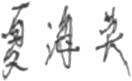 夏海英